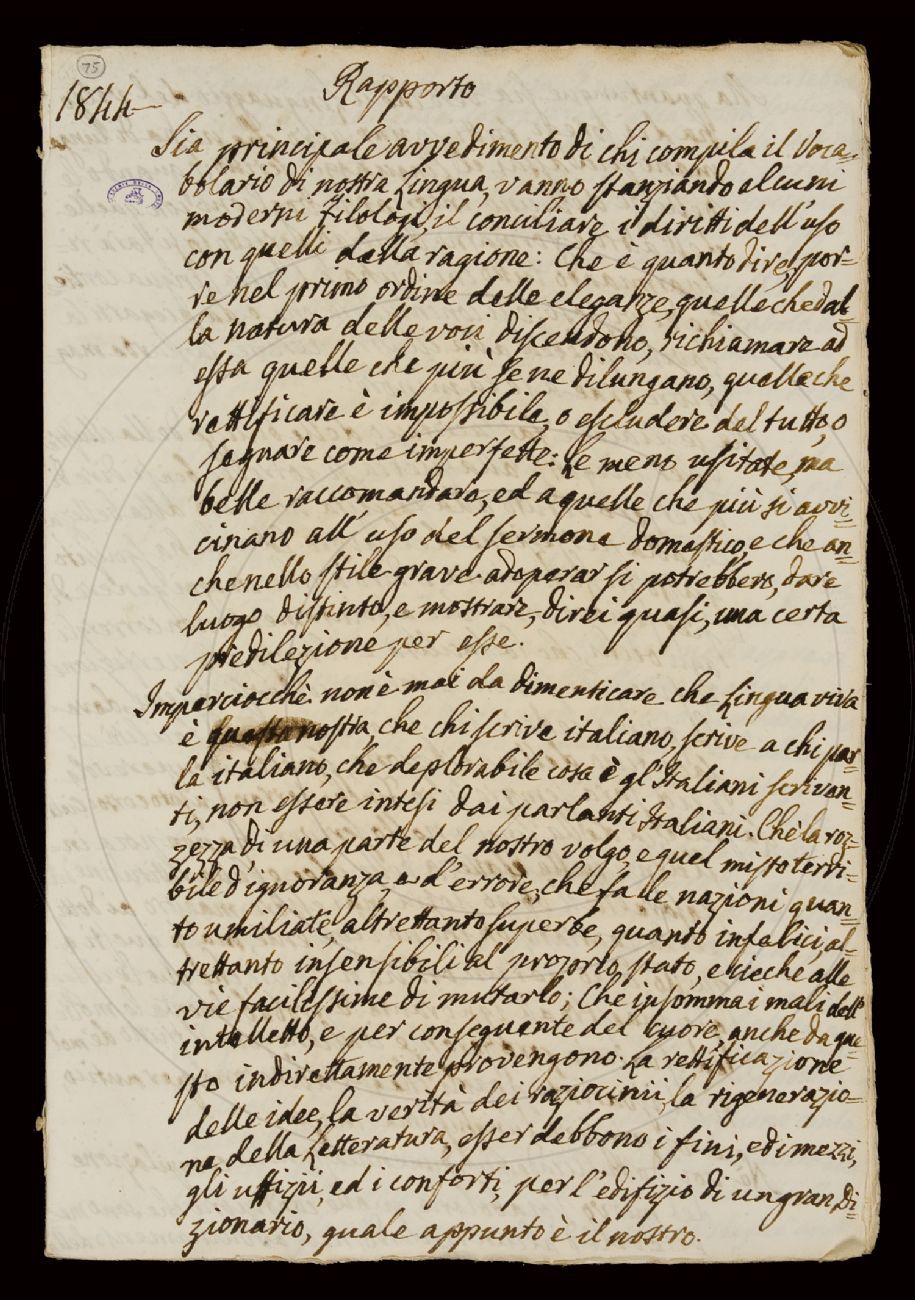 75
1844
Rapporto
Sia principale avvedimento di chi compila il Voca=
bolario di nostra Lingua, vanno stanziando alcuni
moderni filologi, il conciliare i diritti dell'uso
con quelli della ragione: Che è quanto dire, por=
re nel primo ordine delle eleganze, quelle che dal=
la natura delle voci discendono, richiamare ad
essa quelle che più se ne dilungano, quelle che
rettificare è impossibile, o escludere del tutto, o
segnare come imperfette: Le meno usitate, ma
belle raccomandare, ed a quelle che più si avvi=
cinano all'uso del sermone domestico, e che an=
che nello stile grave adoperar si potrebbero, dare
luogo distinto, e mostrare, direi quasi, una certa
predilezione per esse.
Imperciocchè non è mai da dimenticare che Lingua viva
è questa nostra, che chi scrive italiano, scrive a chi par=
la italiano, che deplorabile cosa è gl'Italiani scriven=
ti, non essere intesi dai parlanti Italiani. Chè la roz=
zezza di una parte del nostro volgo, e quel misto terri=
bile d'ignoranza, e d'errore, che fa le nazioni quan=
to umiliate, altrettanto superbe, quanto infelici, al=
trettanto insensibili al proprio stato, e cieche alle
vie facilissime di mutarlo; Che insomma i mali dell'
intelletto, e per conseguente del cuore, anche da que=
sto indirettamente provengono. La rettificazione
delle idee, la verità dei raziocinii, la rigenerazio=
ne della Letteratura, esser debbono i fini, ed i mezzi,
gli uffizii, ed i conforti, per l'edifizio di un gran Di=
zionario, quale appunto è il nostro.